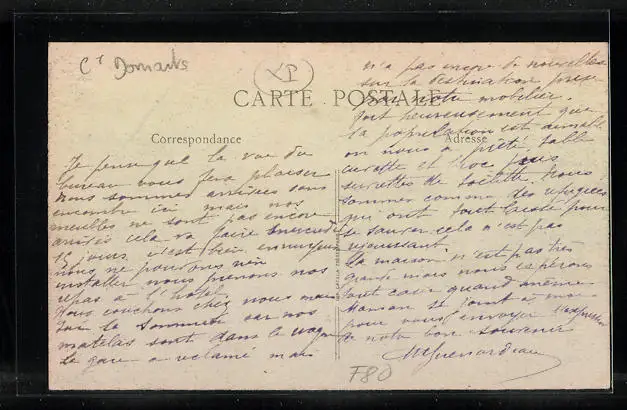 Ct Domarts
XP
CARTE POSTALE
Correspondance
Adresse
Je pense que la vue du
bureau vous fera plaisir
nous sommes arrivées sans
encombre ici mais nos
meubles ne sont pas encore
arrivés cela va faire
15 jours c'est bien ennuyeux
nous ne pouvons rien
installer nous prenons nos
repas à l'hôtel
Nous couchons chez nous mais
sur le sommier car nos
matelas sont dans le wagon
la gare a réclamé mais
n'a pas encore de nouvelles
sur la destination
par notre mobilier.
fort heureusement que
la population est aimable
on nous a prêté table
cuvette et broc
serviettes de toilette nous
sommes comme des réfugiées
qui ont tout laissé pour
se sauver cela n'est pas
réjouissant.
La maison n'est pas très
grande mais nous espérons
tout caser quand même
Maman se joint à moi
pour vous envoyer l'expression
de notre bon souvenir
F80